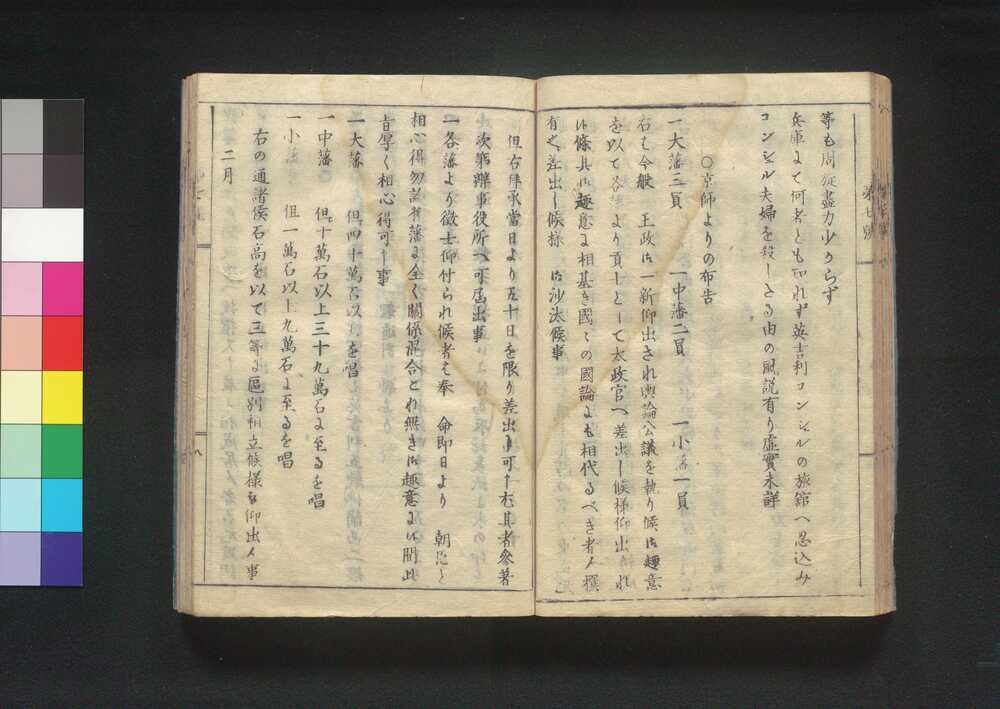 等も周旋盡力少からず
兵庫にて何者とも知れず英吉利コンシルの旅館へ忍込み
コンシル夫婦を殺したる由の風説有り虚實未詳
○京師よりの布告
一大藩三員 一中藩二員 一小藩一員
右は今般 王政御一新仰出され輿論公議を執り候御趣意
を以て各藩より貢士として太政官へ差出し候様仰出され
候條其御趣意に相基き國々の國論にも相代るべき者人撰
有之差出し候様 御沙汰候事
但右拝承當日より五十日を限り差出申可申尤其者參着
次第辨事役所へ可届出事
一各藩より徴士仰付られ候者は奉 命即日より 朝臣と
相心得勿論舊藩に全く關係混合これ無き御趣意に候間此
旨厚く相心得可申事
一大藩 但四十萬石以上を唱
一中藩 但十萬石以上三十九萬石に至るを唱
一小藩 但一萬石以上九萬石に至るを唱
右の通諸侯石高を以て三等に區別相立候様被仰出候事
二月
第七號
八